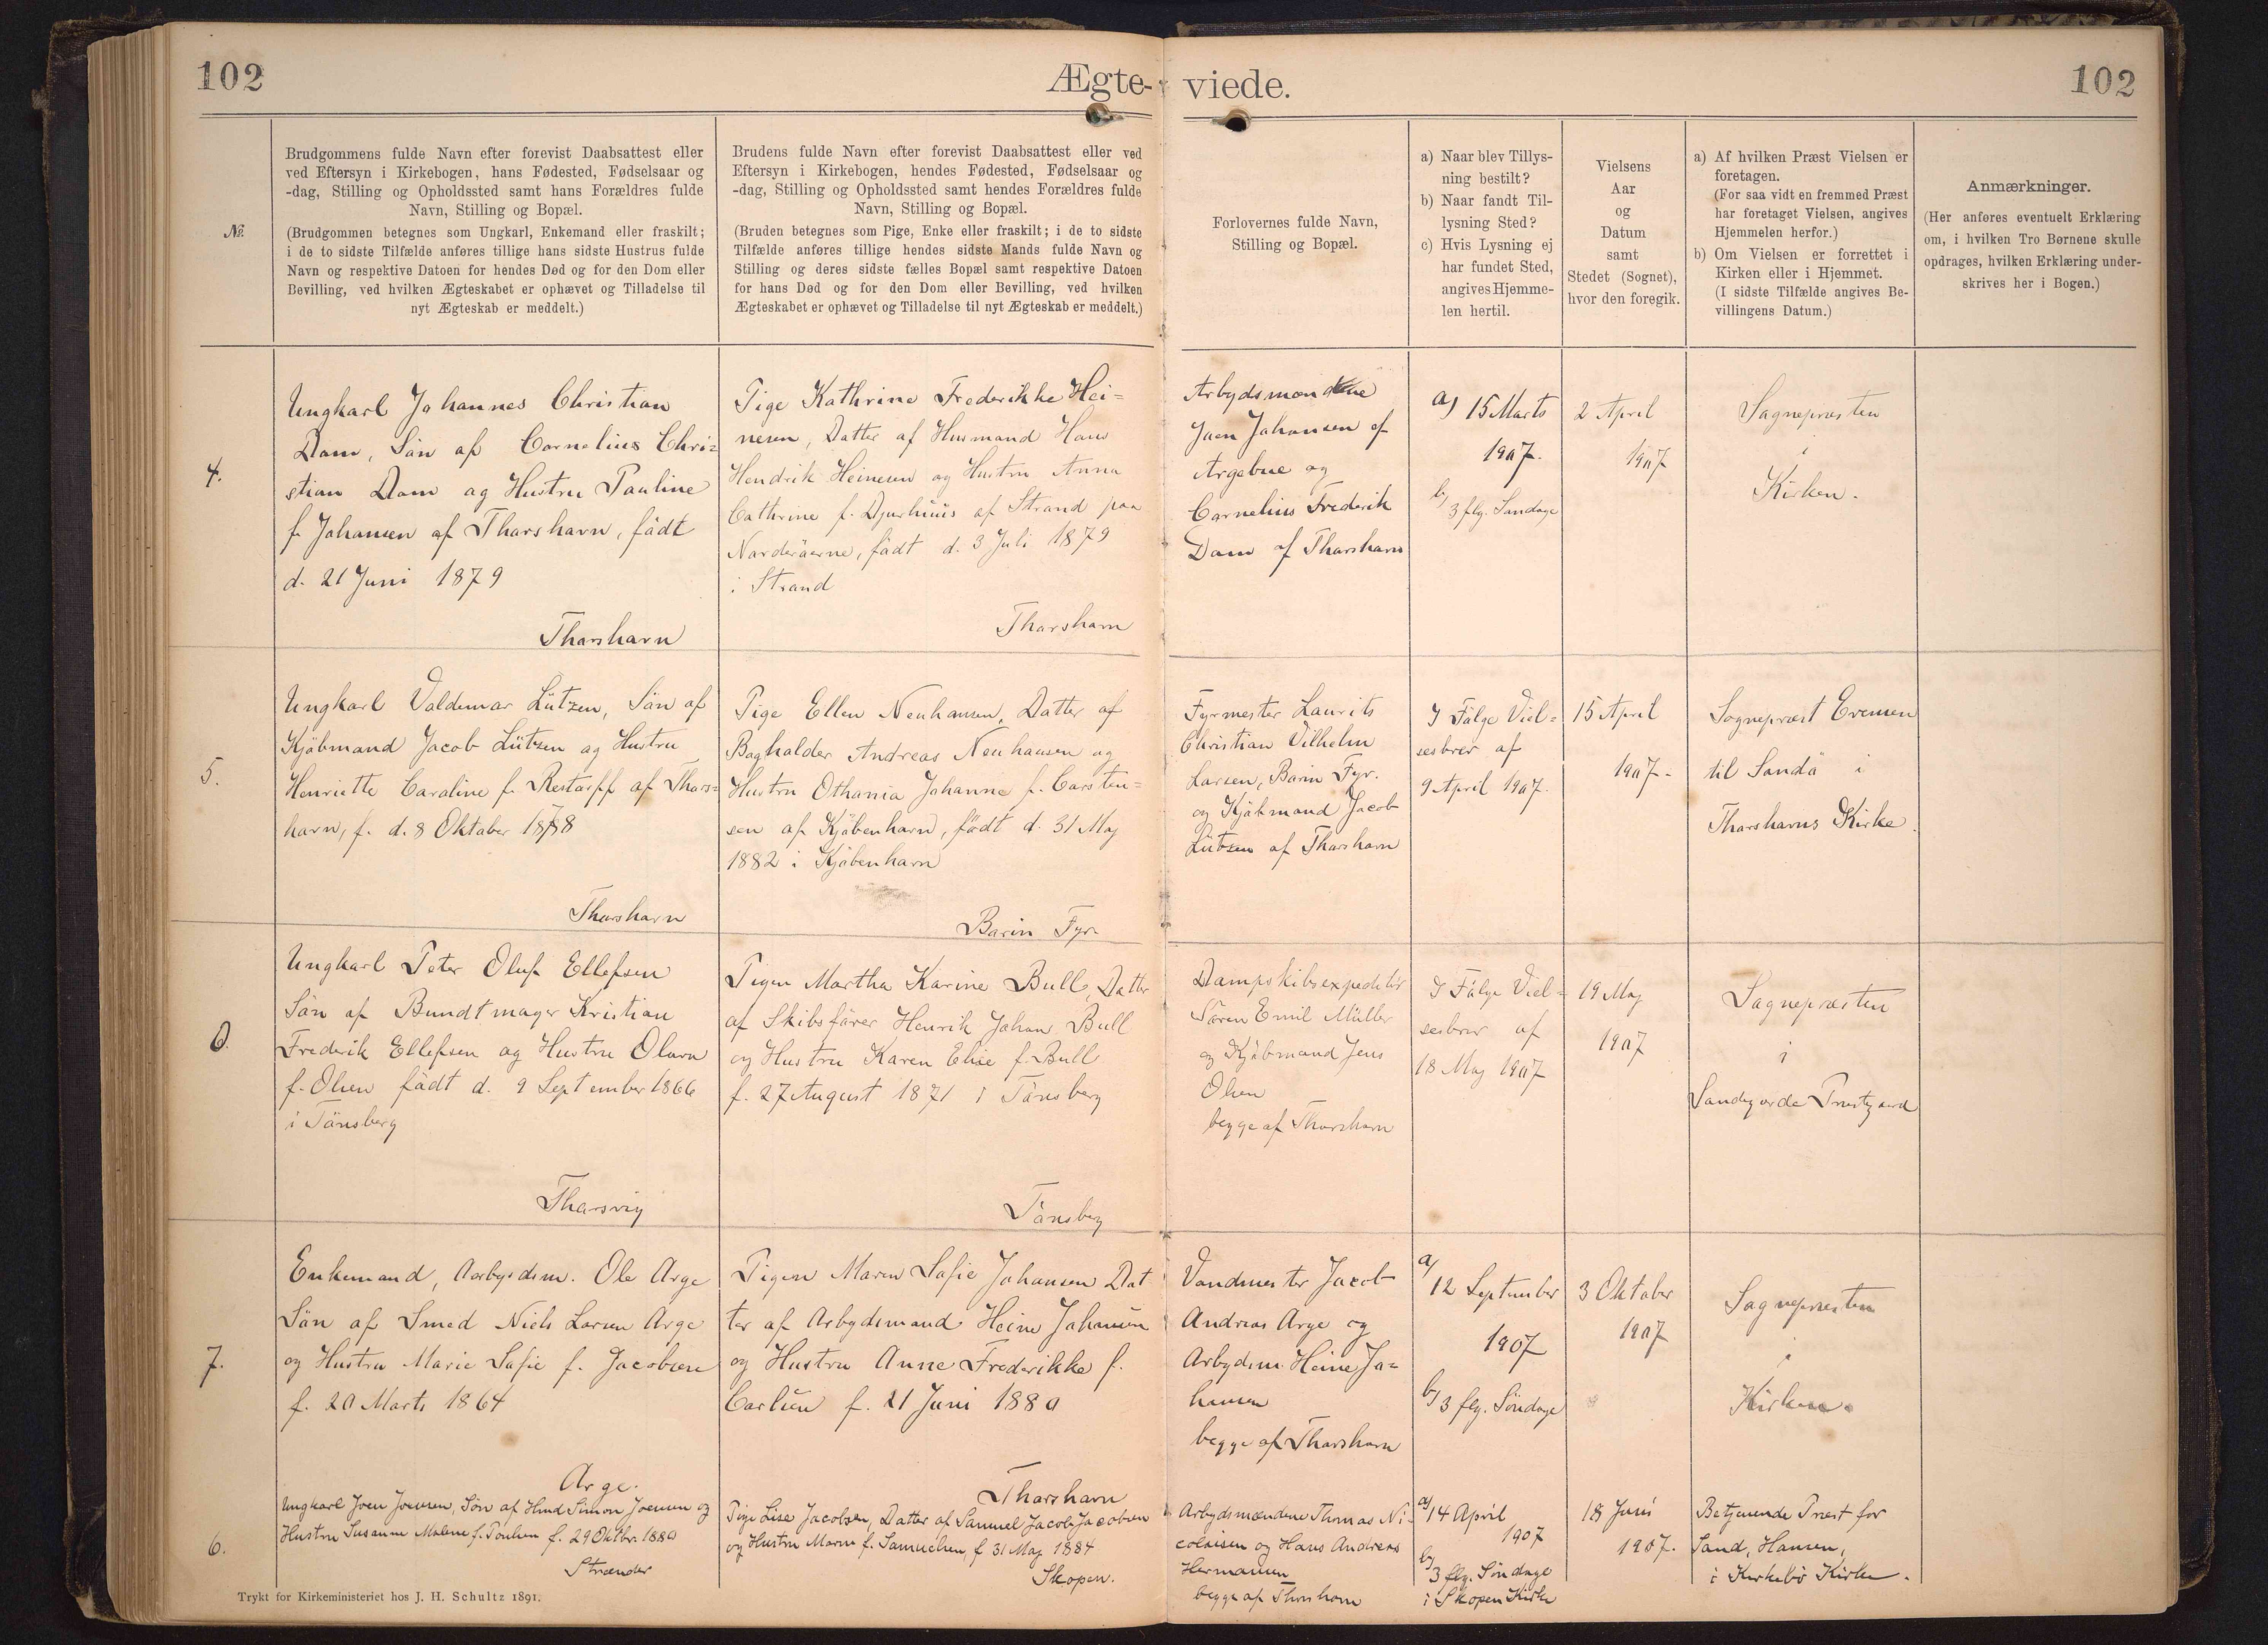 102
Ægte-
viede.
102
№.
Brudgommens fulde Navn efter forevist Daabsattest eller
ved Eftersyn i Kirkebogen, hans Fødested, Fødselsaar og
-dag, Stilling og Opholdssted samt hans Forældres fulde
Navn, Stilling og Bopæl.
(Brudgommen betegnes som Ungkarl, Enkemand eller fraskilt;
i de to sidste Tilfælde anføres tillige hans sidste Hustrus fulde
Navn og respektive Datoen for hendes Død og for den Dom eller
Bevilling, ved hvilken Ægteskabet er ophævet og Tilladelse til
nyt Ægteskab er meddelt.)
Brudens fulde Navn efter forevist Daabsattest eller ved
Eftersyn i Kirkebogen, hendes Fødested, Fødselsaar og
-dag, Stilling og Opholdssted samt hendes Forældres fulde
Navn, Stilling og Bopæl.
(Bruden betegnes som Pige, Enke eller fraskilt; i de to sidste
Tilfælde anføres tillige hendes sidste Mands fulde Navn og
Stilling og deres sidste fælles Bopæl samt respektive Datoen
for hans Død og for den Dom eller Bevilling, ved hvilken
Ægteskabet er ophævet og Tilladelse til nyt Ægteskab er meddelt.)
Forlovernes fulde Navn,
Stilling og Bopæl.
a) Naar blev Tillys-
ning bestilt?
b) Naar fandt Til-
lysning Sted?
c) Hvis Lysning ej
har fundet Sted,
angives Hjemme-
len hertil.
Vielsens
Aar
og
Datum
samt
Stedet (Sognet),
hvor den foregik.
a) Af hvilken Præst Vielsen er
foretagen.
(For saa vidt en fremmed Præst
har foretaget Vielsen, angives
Hjemmelen herfor.)
b) Om Vielsen er forrettet i
Kirken eller i Hjemmet.
(I sidste Tilfælde angives Be-
villingens Datum.)
Anmærkninger.
(Her anføres eventuelt Erklæring
om, i hvilken Tro Børnene skulle
opdrages, hvilken Erklæring under-
skrives her i Bogen.)
4.
Ungkarl Johannes Christian
Dam, Sön af Cornelius Chri=
stian Dam og Hustru Pauline
f. Johansen af Thorshavn, födt
d. 21 Juni 1879
Thorshavn
Pige Kathrine Frederikke Hei=
nesen, Datter af Husmand Hans
Hendrik Heinesen og Hustru Anna
Cathrine f. Djurhuus af Strand paa
Norderöerne, födt d. 3 Juli 1879
i Strand
Thorshavn
Arbejdsmændene
Joen Johansen af
Argebue og
Cornelius Frederik
Dam af Thorshavn
a) 15 Marts
1907.
b) 3 flg. Sondage
2 April
1907
Sognepræsten
i
Kirken.
5.
Ungkarl Valdemar Lützen, Sön af
Kjöbmand Jacob Lützen og Hustru
Henriette Caroline f. Restorff af Thors=
havn, f. d. 8 Oktober 1878
Thorshavn
Pige Ellen Neuhausen, Datter af
Bogholder Andreas Neuhausen og
Hustru Othania Johanne f. Carsten=
sen af Kjöbenhavn, födt d. 31 Maj
1882 i Kjöbenhavn
Borin Fyr
Fyrmester Laurits
Christian Vilhelm
Larsen, Borin Fyr.
og Kjöbmand Jacob
Lützen af Thorshavn
I Fölge Viel=
sesbrev af
9 April 1907.
15 April
1907.
Sognepræst Evensen
til Sandö i
Thorshavns Kirke.
6.
Ungkarl Peter Oluf Ellefsen
Sön af Bundtmager Kristian
Frederik Ellefsen og Hustru Olava
f. Olsen födt d. 9 September 1866
i Tönsberg
Thorsvig
Pigen Martha Karine Bull, Datter
af Skibsförer Henrik Johan Bull
og Hustru Karen Elise f. Bull
f. 27 August 1871 i Tönsberg
Tönsberg
Dampskibsexpeditör
Sören Emil Müller
og Kjöbmand Jens
Olsen
begge af Thorshavn
I Fölge Viel=
sesbrev af
18 Maj 1907
19 Maj
1907
Sognepræsten
i
Sandegærde Præstegaard
7.
Enkemand, Arbejdsm. Ole Arge
Sön af Smed Niels Larsen Arge
og Hustru Marie Sofie f. Jacobsen
f. 20 Marts 1864
Arge.
Pigen Maren Sofie Johansen Dat
ter af Arbejdsmand Heine Johansen
og Hustru Anne Frederikke f.
Carlsen f. 21 Juni 1880
Thorshavn
Vandmester Jacob
Andreas Arge og
Arbejdsm. Heine Jo=
hansen
begge af Thorshavn
a) 12 September
1907
b) 3 flg. Söndage
3 Oktober
1907
Sognepræsten
i
Kirken.
6.
Ungkarl Joen Joensen, Søn af Hmd Simon Joensen og
Hustru Susanne Malene f. Poulsen f. 29 Oktbr. 1880
Strænder
Pige Lise Jacobsen, Datter af Samuel Jacob Jacobsen
og Hustru Maren f. Samuelsen, f 31 Maj 1884
Skopen.
Arbejdsmændene Thomas Ni-
colaisen og Hans Andreas
Hermansen
begge af Thorshavn
a) 14 April
1907
b) 3 flg. Söndage
i Skopen Kirke
18 Juni
1907.
Betjenende Præst for
Sand, Hansen,
i Kirkebö Kirke.
Trykt for Kirkeministeriet hos J. H. Schultz 1891.